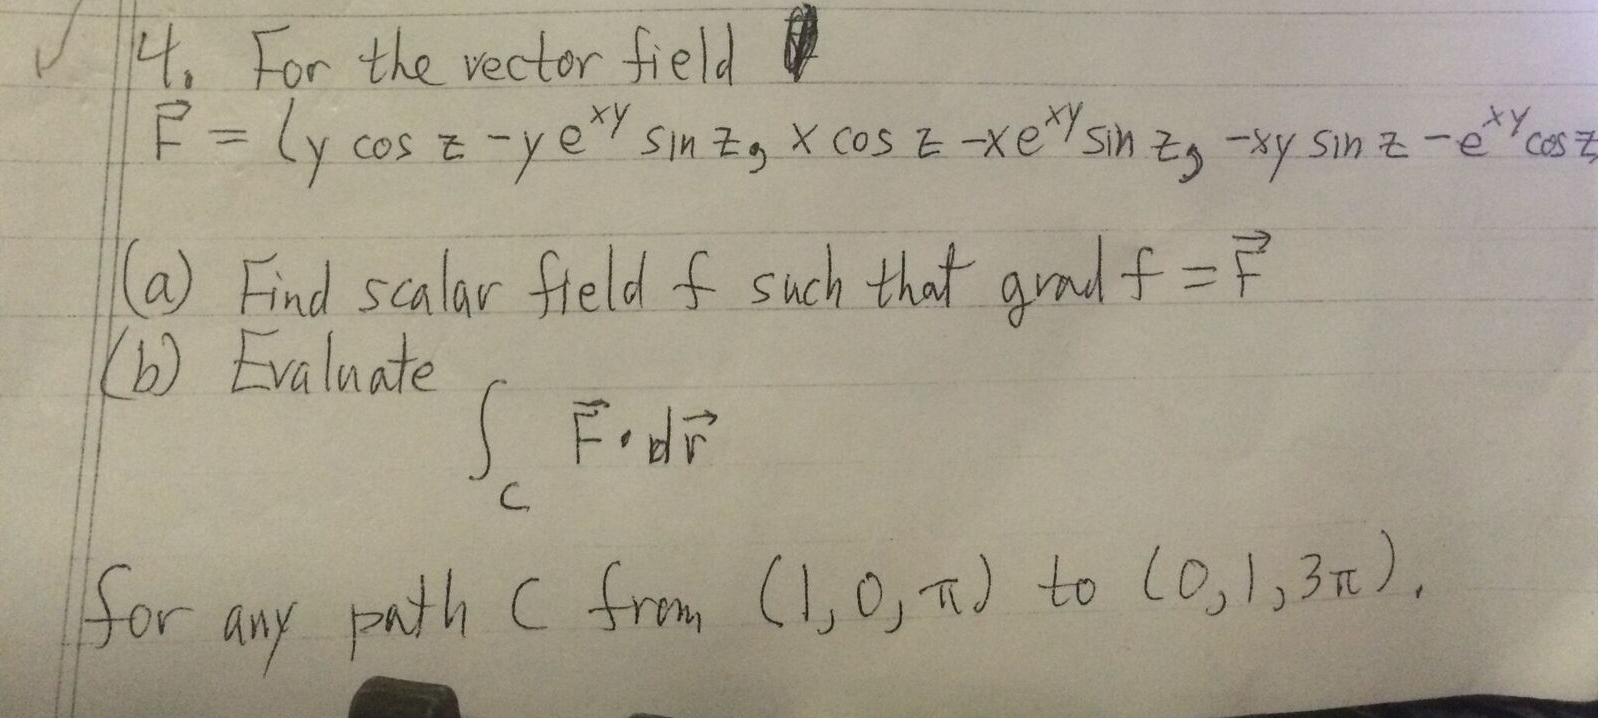 4. For the vector field
F⃗ = (y cos z - y e^xy sin z, x cos z - x e^xy sin z, -xy sin z - e^xy cos z
(a) Find scalar field f such that grad f = F⃗
(b) Evaluate
∫_C F⃗ · dr⃗
for any path C from (1, 0, π) to (0, 1, 3π).